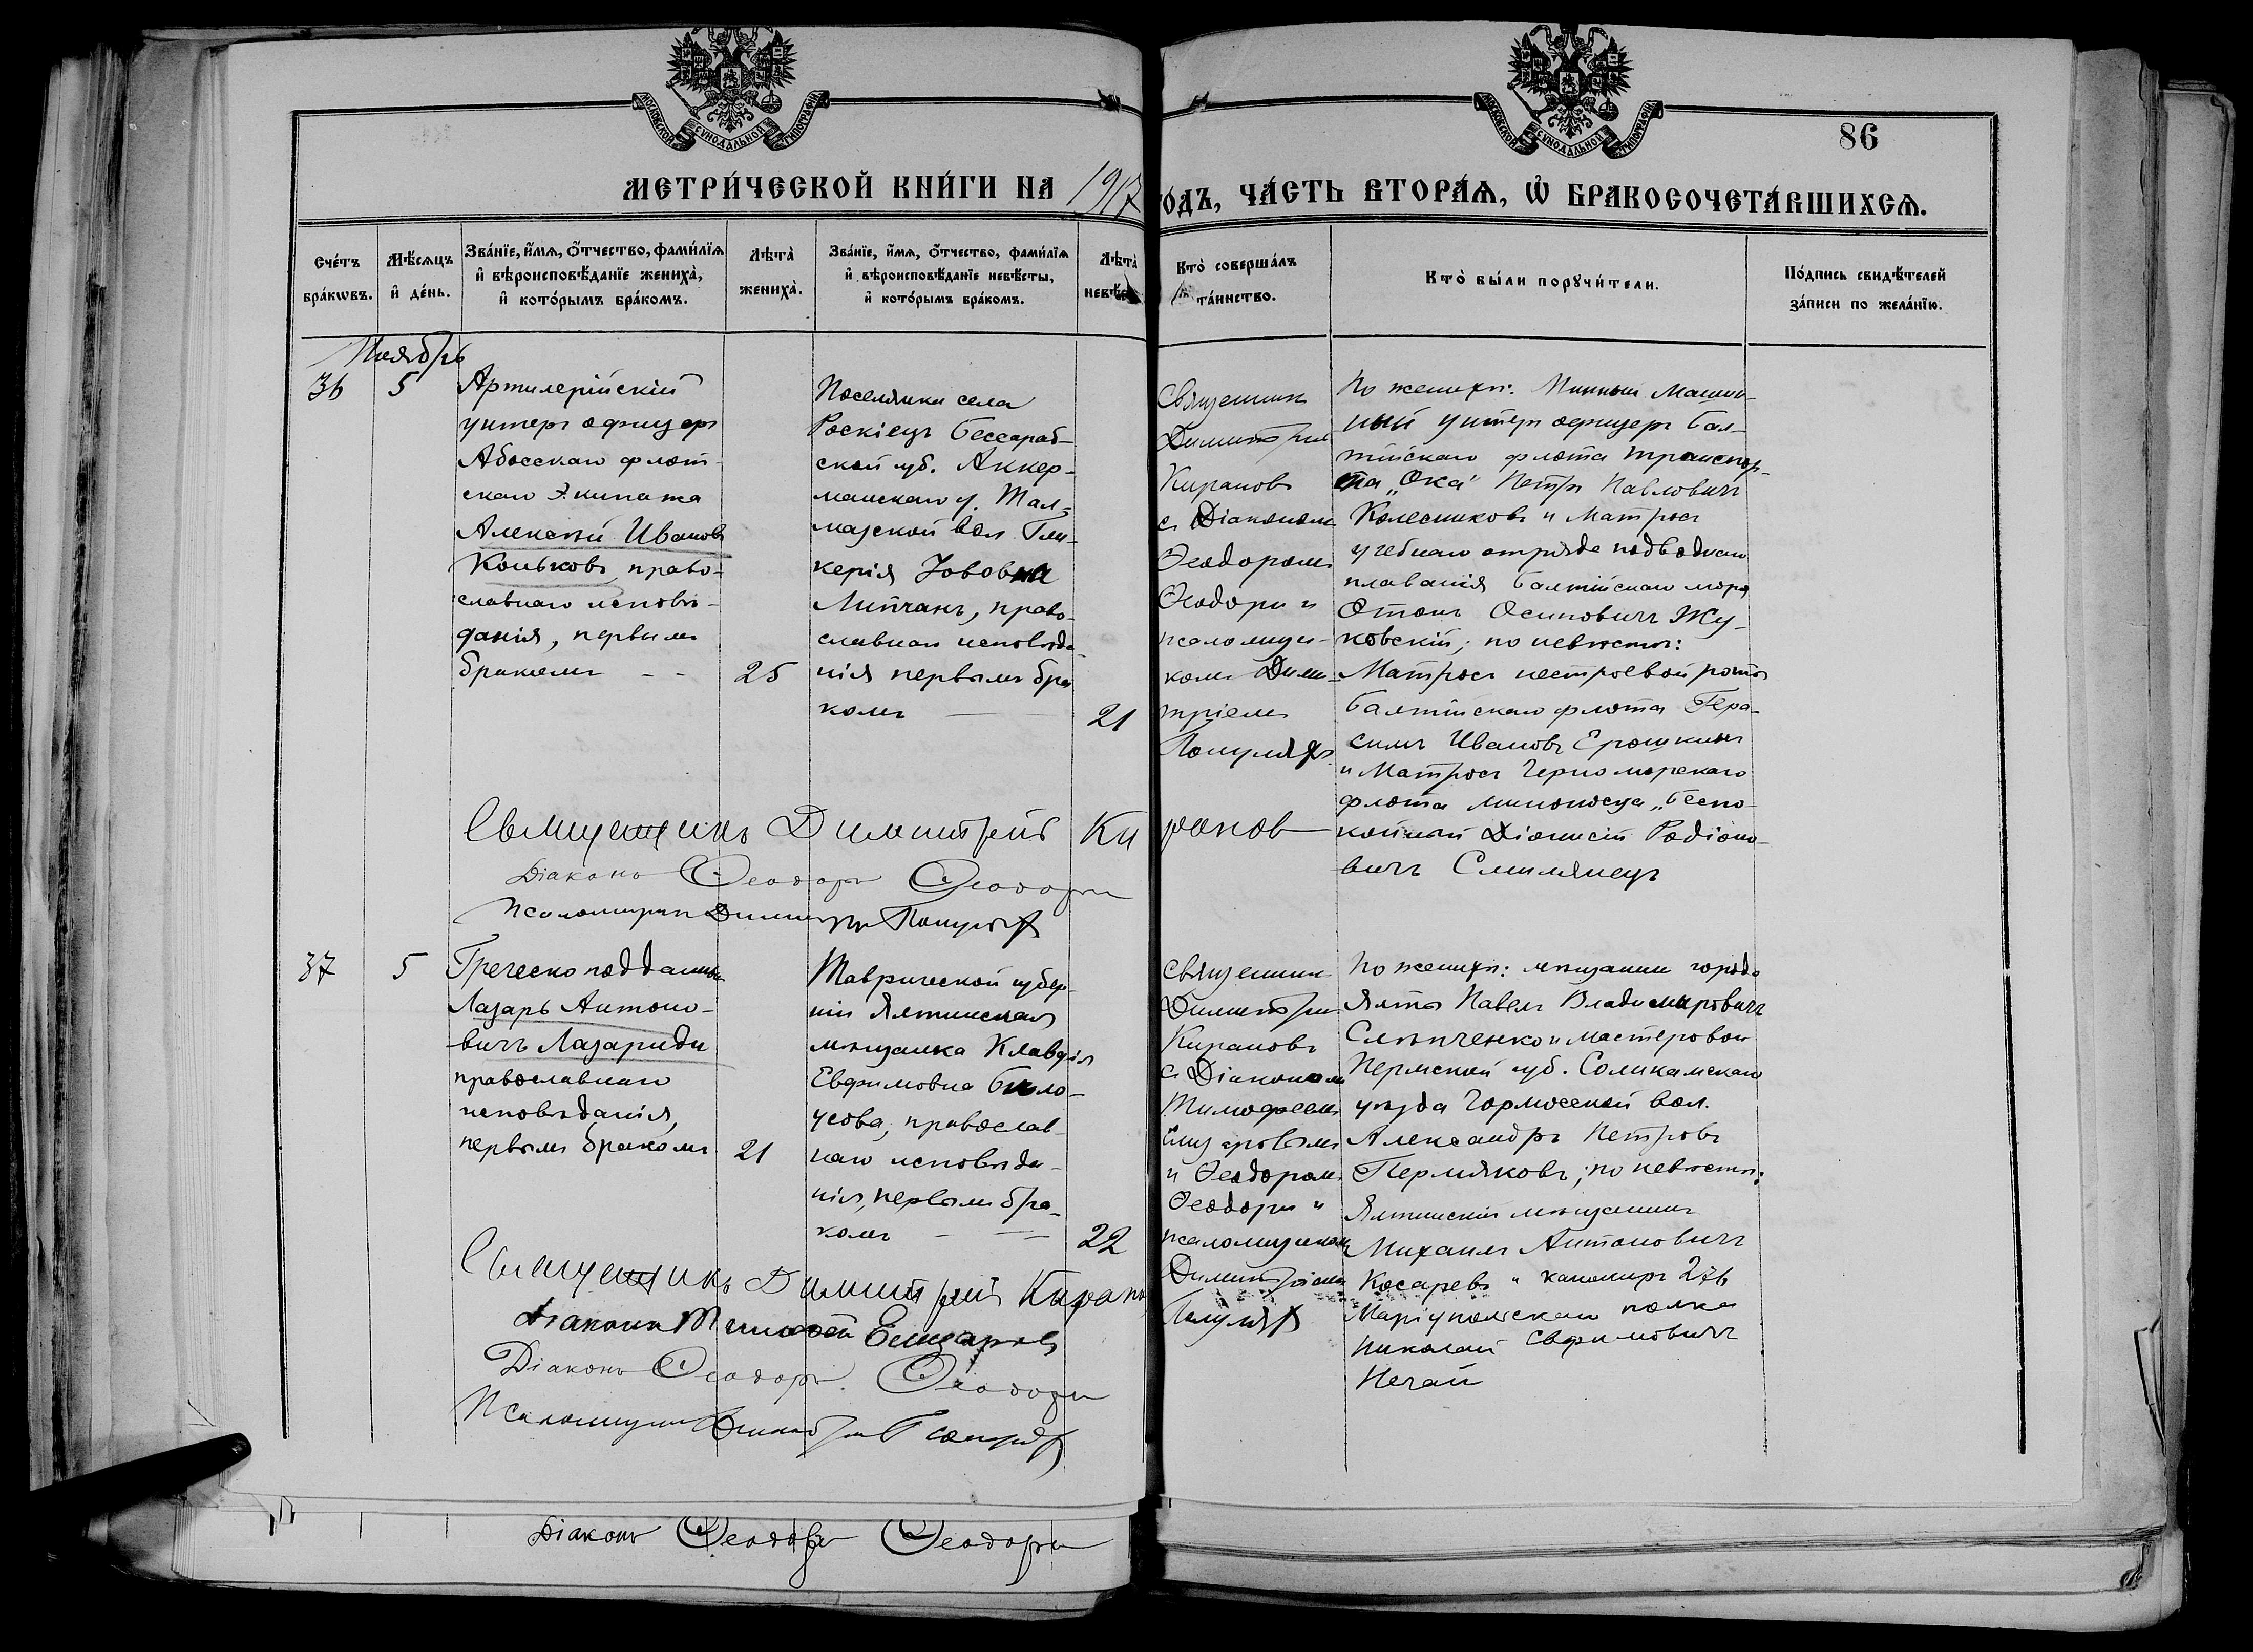 МОСКОВСКОЙ СѴНОДАЛЬНОЙ ТИПОГРАФІИ
МОСКОВСКОЙ СѴНОДАЛЬНОЙ ТИПОГРАФІИ
86
МЕТРИ́ЧЕСКОЙ КНИ́ГИ НА 1917
ГОДЪ, ЧА́СТЬ ВТОРА́Ѧ, Ѡ҆ БРАКОСОЧЕТА́ВШИХСѦ.
Сче́тъ бра́кѡвъ.
Мѣ́сѧцъ и҆ де́нь.
Зва́нїе, и҆́мѧ, ѻ҆́тчество, фами́лїѧ
и҆ вѣроисповѣ́данїе жениха̀,
и҆ кото́рымъ бра́комъ.
Лѣта̀ жениха̀.
Зва́нїе, и҆́мѧ, ѻ҆́тчество, фами́лїѧ
и҆ вѣроисповѣ́данїе невѣ́сты,
и҆ кото́рымъ бра́комъ.
Лѣта̀
Кто̀ соверша́лъ
та́инство.
Кто̀ бы́ли порꙋчи́тели.
По́дпись свидѣ́телей
за́писи по жела́нїю.
Ноябрь
36
5
Артилерійскій
унтеръ офицеръ
Абосскаго флот-
скаго Экипажа
Алексѣй Ивановъ
Коньковъ, право-
славнаго исповѣ-
данія, первымъ
бракомъ - -
25
Поселянка села
Роскіецъ Бессараб-
ской губ. Аккер-
манскаго у. Тал-
мазской вол. Гли-
керія Іововна
Липчанъ, право-
славнаго исповѣда-
нія первымъ бра
комъ —
21
Священникъ
Димитрій
Кирановъ
съ Діакономъ
Ѳеодоромъ
Ѳеодори и
псаломщи-
комъ Дими-
тріемъ
По женихѣ: Минный Машин-
ный унтеръ офицеръ Бал-
тійскаго флота транспор-
та „Ока" Петръ Павловичъ
Колесниковъ и Матросъ
учебнаго отряда подводнаго
плаванія Балтійскаго моря
Отонъ Осиповичъ Жу-
ковскій; по невѣстѣ:
Матросъ нестроевой роты
Балтійскаго флота Гера-
симъ Ивановъ Ерошкинъ
и Матросъ Черноморскаго
флота миноносца „Беспо-
койный" Діонисій Родіоно-
вичъ Смилянецъ
Священникъ Димитрій Кирановъ
Діаконъ Ѳеодоръ Ѳеодори
Псаломщикъ Димитрій
37
5
Греческо подданный
Лазарь Антоно-
вичъ Лазариди
православнаго
исповѣданія,
первымъ бракомъ
21
Таврической губер-
ніи Ялтинская
мѣщанка Клавдія
Евфимовна Бѣло-
усова, православ-
наго исповѣда-
нія, первымъ бра-
комъ - —
22
Священникъ
Димитрій
Кирановъ
съ Діакономъ
Тимофеемъ
и Ѳеодоромъ
Ѳеодори и
псаломщикомъ
Димитріемъ
По женихѣ: мѣщанинъ города
Ялты Павелъ Владимировичъ
Слѣпченко и мастеровой
Пермской губ. Соликамскаго
уѣзда вол.
Александръ Петровъ
Пермяковъ; по невѣстѣ:
Ялтинскій мѣщанинъ
Михаилъ Антоновичъ
Косаревъ и канониръ 276
Маріупольскаго полка
Николай Евфимовичъ
Нечай
Священникъ Димитрій Киранов
Діаконъ Тимофей Елизаровъ
Діаконъ Ѳеодоръ Ѳеодори
Псаломщикъ Димитрій
Діаконъ Ѳеодоръ Ѳеодори